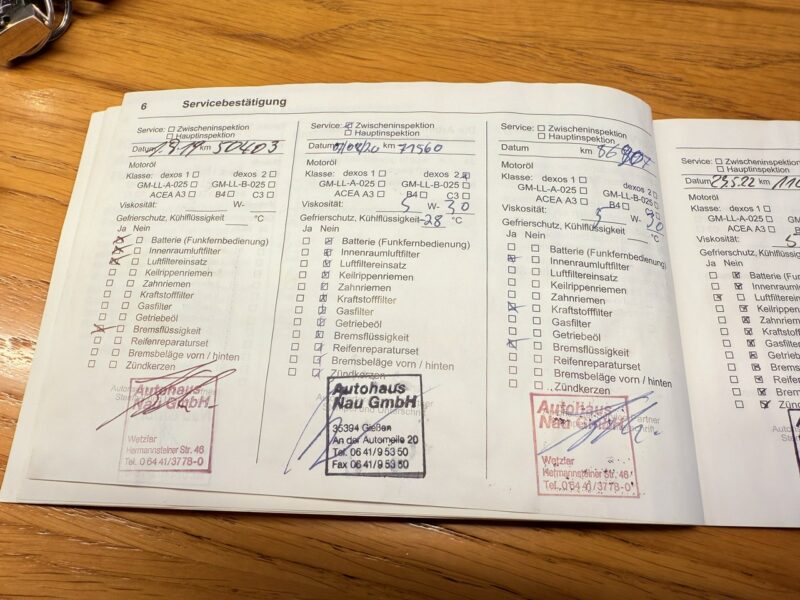 6 Servicebestätigung
Service: Zwischeninspektion
Hauptinspektion
Datum km 50403
Motoröl
Klasse: dexos 1 dexos 2
GM-LL-A-025 GM-LL-B-025
ACEA A3 B4 C3
Viskosität: W-
Gefrierschutz, Kühlflüssigkeit °C
Ja Nein
Batterie (Funkfernbedienung)
Innenraumluftfilter
Luftfiltereinsatz
Keilrippenriemen
Zahnriemen
Kraftstofffilter
Gasfilter
Getriebeöl
Bremsflüssigkeit
Reifenreparaturset
Bremsbeläge vorn / hinten
Zündkerzen
Autohaus
Nau GmbH
Wetzlar
Hermannsteiner Str. 46
Tel. 0 64 41/3778-0
Service: Zwischeninspektion
Hauptinspektion
Datum km 71560
Motoröl
Klasse: dexos 1 dexos 2
GM-LL-A-025 GM-LL-B-025
ACEA A3 B4 C3
Viskosität: 5 W- 30
Gefrierschutz, Kühlflüssigkeit -28 °C
Ja Nein
Batterie (Funkfernbedienung)
Innenraumluftfilter
Luftfiltereinsatz
Keilrippenriemen
Zahnriemen
Kraftstofffilter
Gasfilter
Getriebeöl
Bremsflüssigkeit
Reifenreparaturset
Bremsbeläge vorn / hinten
Zündkerzen
Autohaus
Nau GmbH
35394 Gießen
An der Automeile 20
Tel. 06 41/9 53 50
Fax 06 41/9 53 50
Service: Zwischeninspektion
Hauptinspektion
Datum km
Motoröl
Klasse: dexos 1 dexos 2
GM-LL-A-025 GM-LL-B-025
ACEA A3 B4 C3
Viskosität: 5 W- 30
Gefrierschutz, Kühlflüssigkeit °C
Ja Nein
Batterie (Funkfernbedienung)
Innenraumluftfilter
Luftfiltereinsatz
Keilrippenriemen
Zahnriemen
Kraftstofffilter
Gasfilter
Getriebeöl
Bremsflüssigkeit
Reifenreparaturset
Bremsbeläge vorn / hinten
Zündkerzen
Autohaus
Nau GmbH
Wetzlar
Hermannsteiner Str. 46
Tel. 0 64 41/3778-0
Service: Zwischeninspektion
Hauptinspektion
Datum 23.5.22 km
Motoröl
Klasse: dexos 1
GM-LL-A-025 GM-L
ACEA A3 B4
Viskosität: 5
Gefrierschutz, Kühlflüssig
Ja Nein
Batterie (Funkf
Innenraumluft
Luftfilterein
Keilripp
Zahnriem
Kraftstoff
Gasfilter
Getriebe
Brems
Reifen
Brem
Zünd